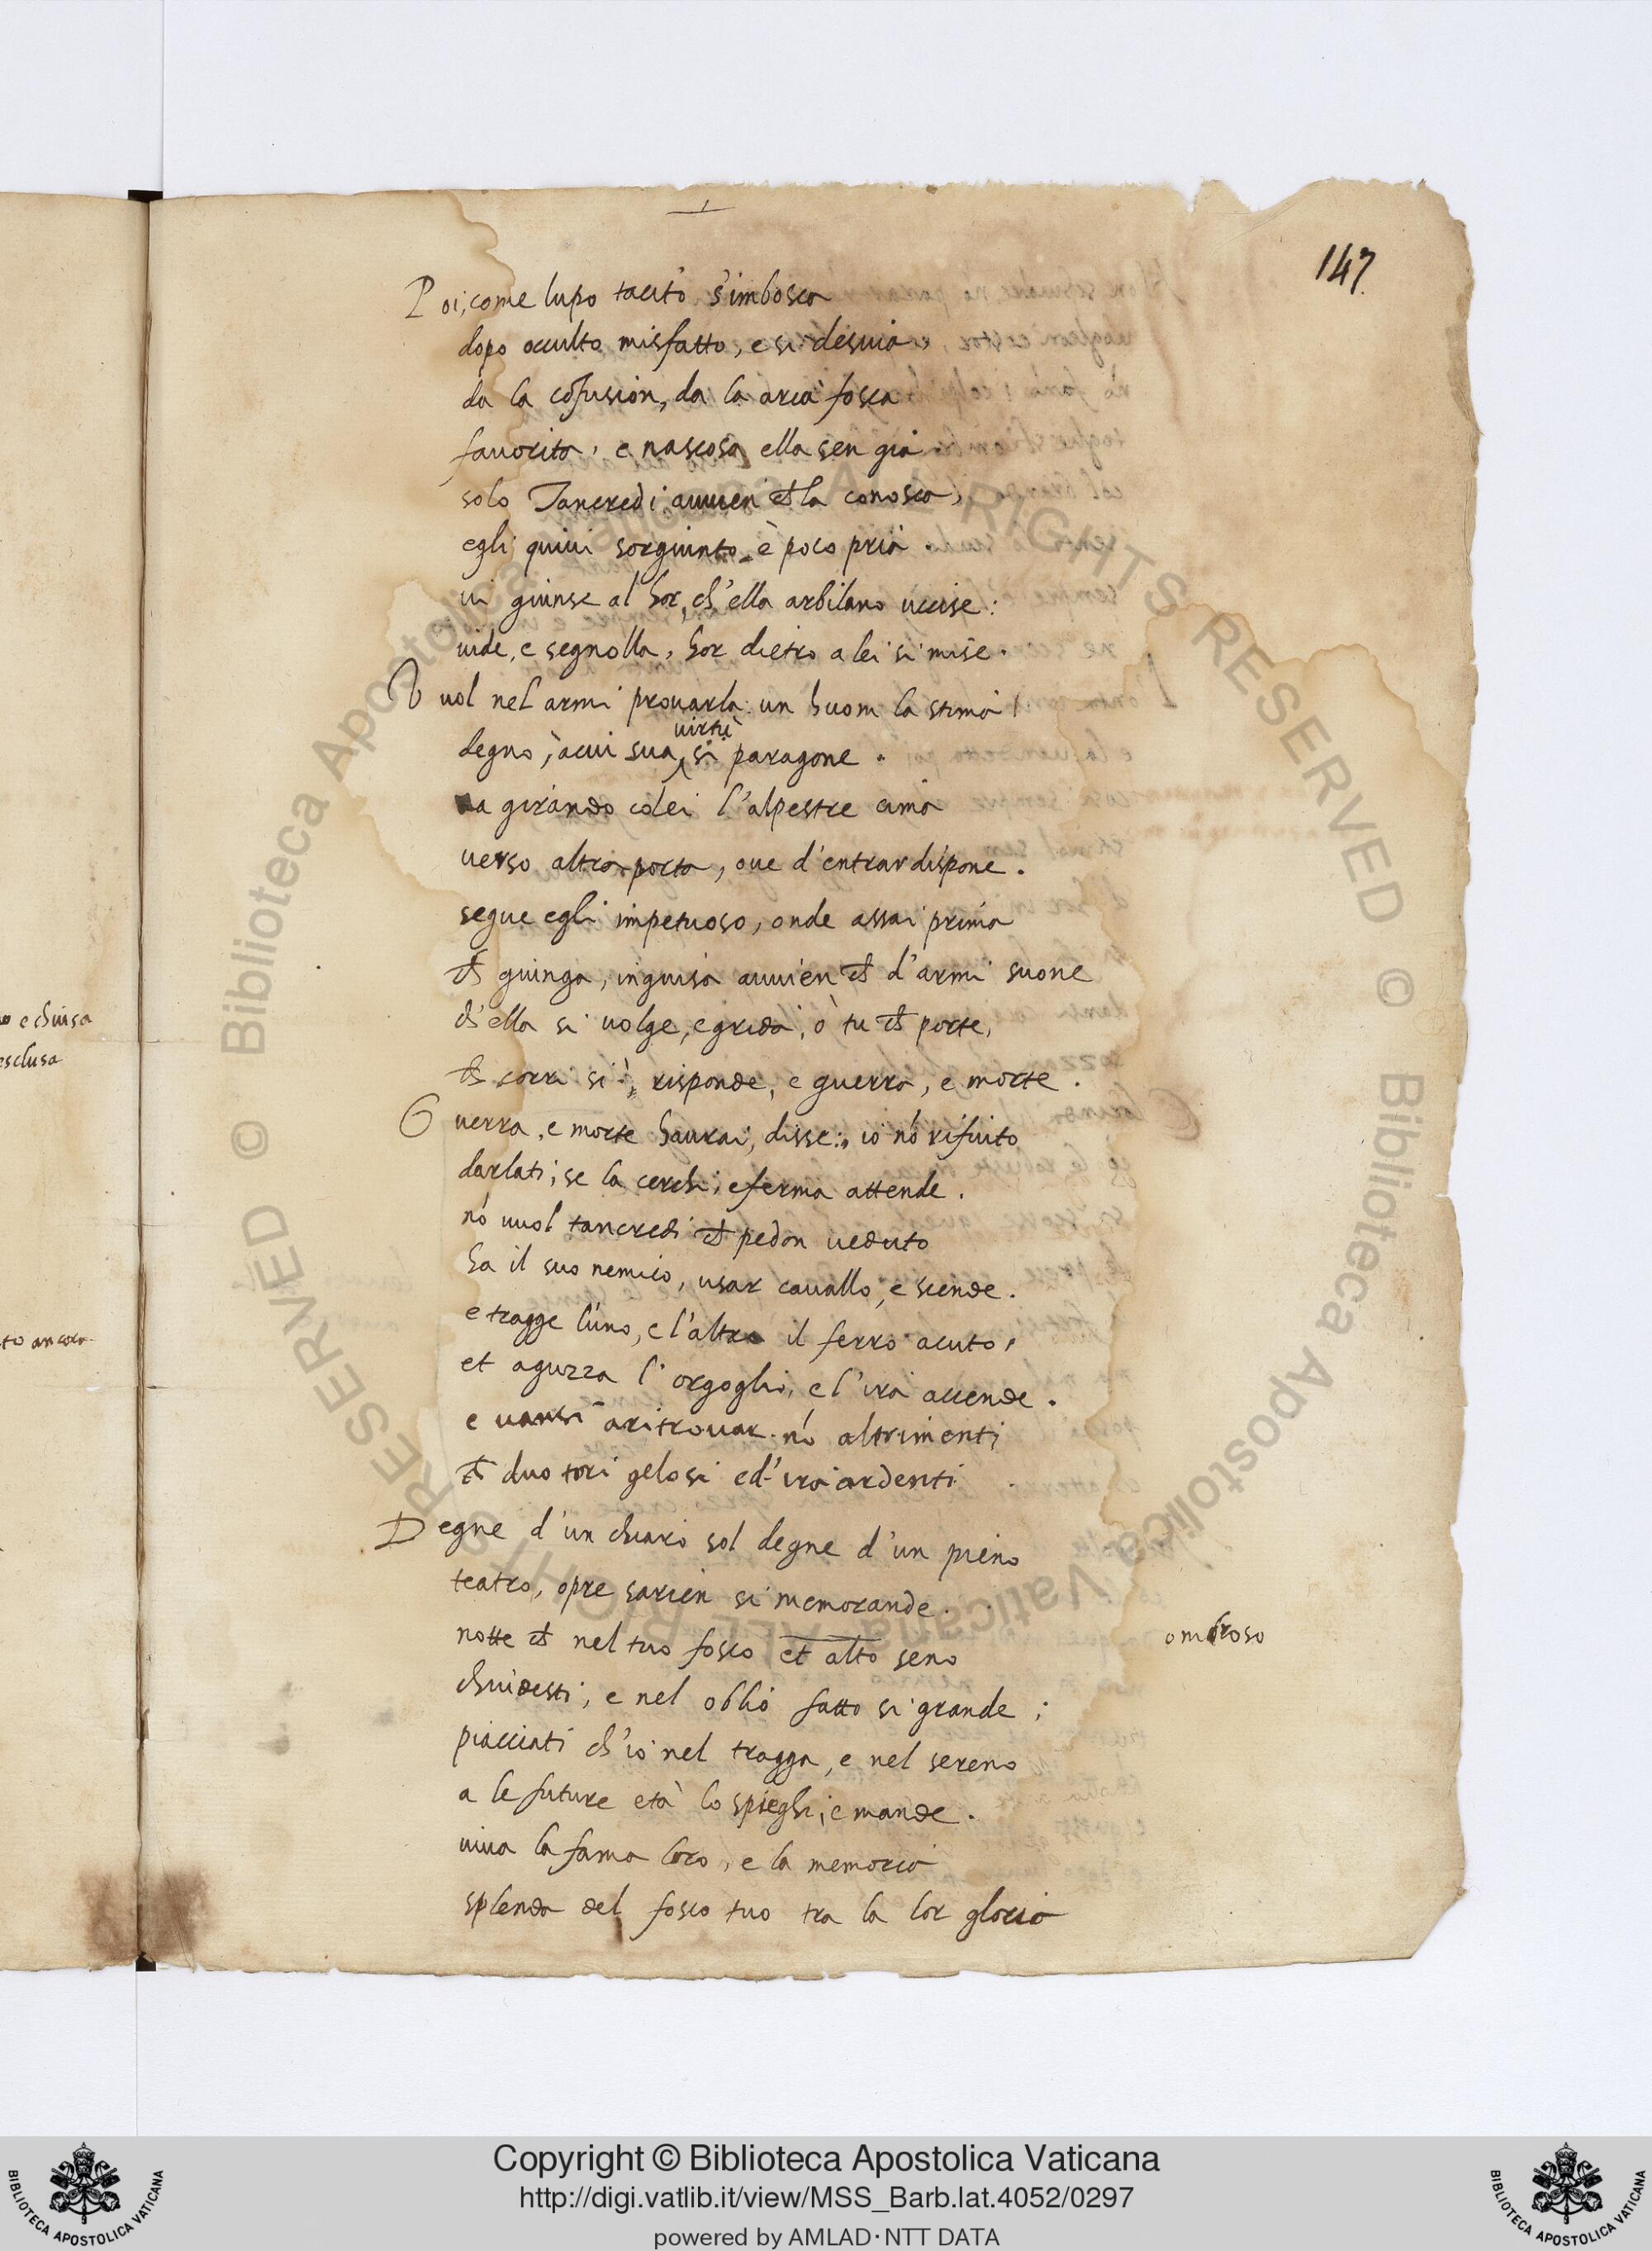 147
Poi, come lupo tacito s'imbosca
dopo occulto misfatto, e si desuia,
da la cōfusion, da la aria fosca
fauorita, e nascosa ella sen gia.
solo Tancredi auuien ch̄ la conosca,
egli quiui sorgiunto è poco pria.
ui giunse al hor, ch'ella arbilano uccise:
uide, e segnolla, hor dietro a lei si mise.
Vuol nel armi prouarla: un huom la stima
degno, à cui sua virtù si paragone.
ua girando colei l'alpestre cima
uerso altra porta, oue d'entrar dispone.
segue egli impetuoso, onde assai prima
ch̄ giunga, in guisa auuien ch̄ d'armi suone
ch'ella si uolge, e grida, ò tu ch̄ porte,
ch̄ corri sì, risponde, e guerra, e morte.
Guerra, e morte haurai, disse: io nō rifiuto
darlati, se la cerchi, e ferma attende.
nō uuol tancredi ch̄ pedon ueduto
ha il suo nemico, usar cauallo, e scende.
e tragge l'uno, e l'altro il ferro acuto,
et aguzza l'orgoglio, e l'ira accende.
e uansi a ritrouar nō altrimenti
ch̄ duo tori gelosi e d'ira ardenti
Degne d'un chiaro sol degne d'un pieno
teatro, opre sarien si memorande.
notte ch̄ nel tuo fosco et alto seno
ombroso
chiudesti, e nel oblio fatto si grande;
piacciati ch'io nel tragga, e nel sereno
a le future età lo spieghi, e mande.
uiua la fama loro, e la memoria
splenda del fosco tuo tra la lor gloria
e chiusa
esclusa
to ancora
© Biblioteca Apostolica Vaticana ALL RIGHTS RESERVED
Copyright © Biblioteca Apostolica Vaticana
http://digi.vatlib.it/view/MSS_Barb.lat.4052/0297
powered by AMLAD·NTT DATA
BIBLIOTECA APOSTOLICA VATICANA
BIBLIOTECA APOSTOLICA VATICANA